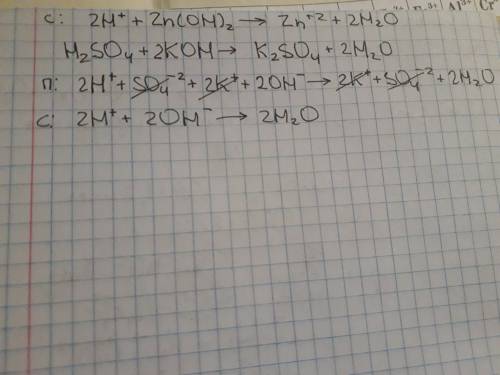 с: 2H⁺ + Zn(OH)₂ → Zn⁺² + 2H₂O
H₂SO₄ + 2KOH → K₂SO₄ + 2H₂O
п: 2H⁺ + SO₄⁻² + 2K⁺ + 2OH⁻ → 2K⁺ + SO₄⁻² + 2H₂O
с: 2H⁺ + 2OH⁻ → 2H₂O